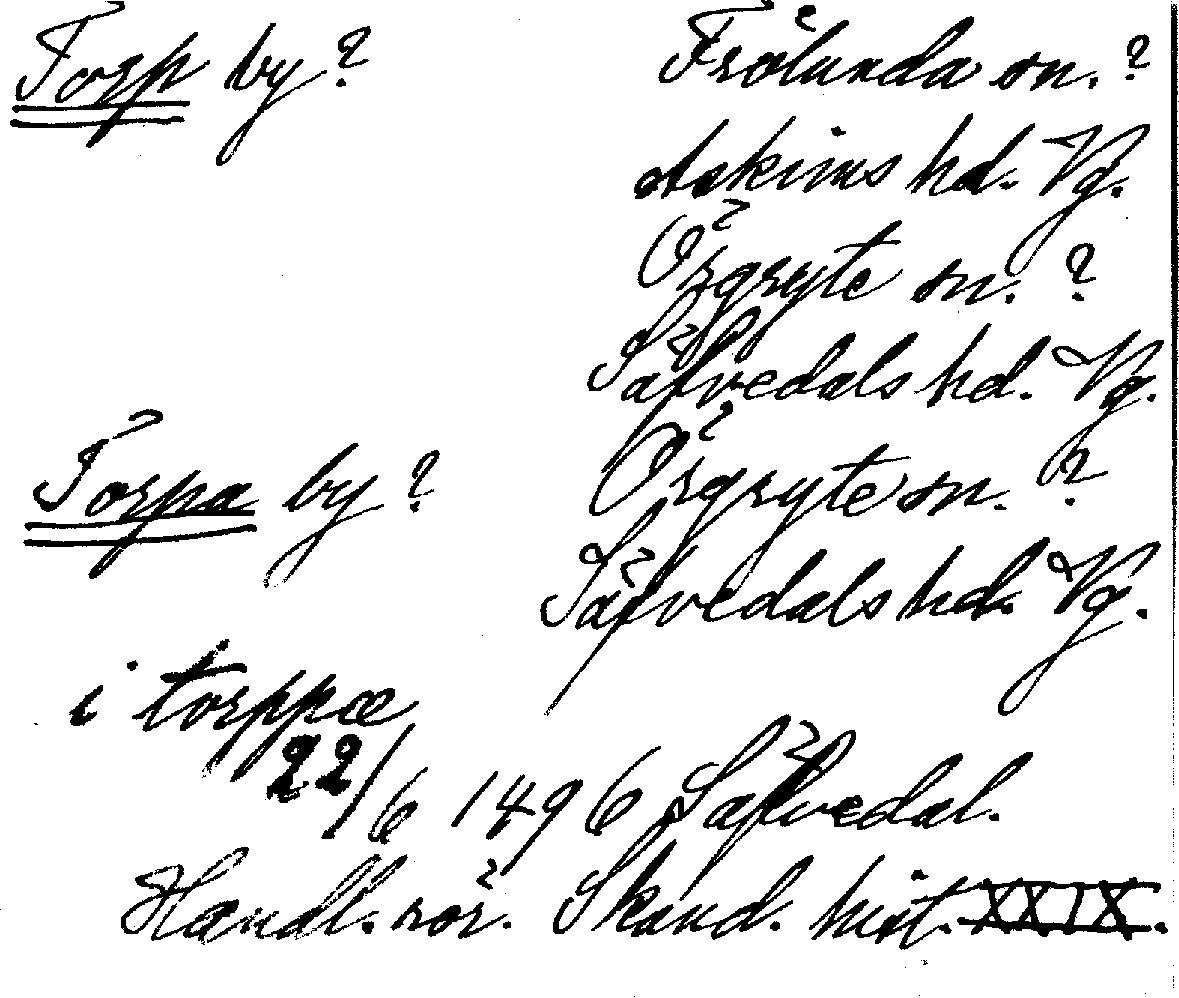 Torp by? Frölunda sn.?
Askims hd. Vg.
Örgryte sn.?
Säfvedals hd. Vg.
Torpa by? Örgryte sn.?
Säfvedals hd. Vg.
i torppæ
22/6 1496 Säfvedal.
Handl. rör. Skand. hist. XXIX.